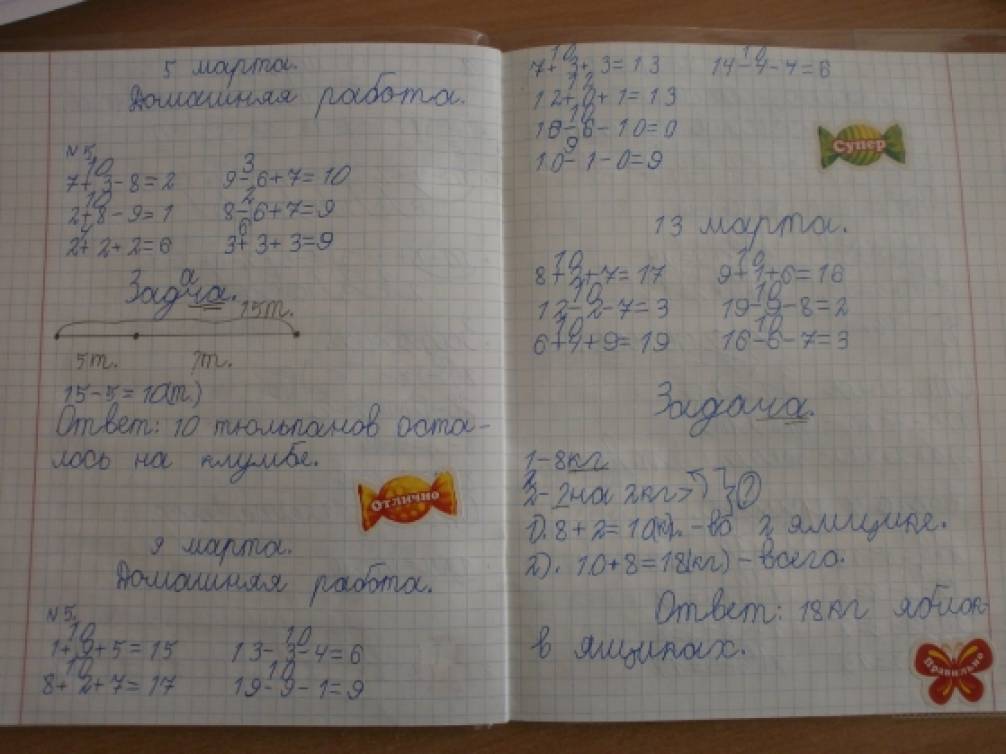 5 марта.
Домашняя работа.
№ 5.
10 3
7+3-8=2 9-6+7=10
10 2
2+8-9=1 8-6+7=9
4 6
2+2+2=6 3+3+3=9
Задача.
15т.
5т. ?т.
15-5=10(т.)
Ответ: 10 тюльпанов оста-
лось на клумбе.
Отлично
9 марта.
Домашняя работа.
№ 5.
10 10
1+9+5=15 13-3-4=6
10 10
8+2+7=17 19-9-1=9
10 10
7+3+3=13 14-4-4=6
12
12+0+1=13
10
16-6-10=0
9
10-1-0=9
Супер
13 марта.
10 10
8+2+7=17 9+1+6=16
10 10
12-2-7=3 19-9-8=2
10 10
6+4+9=19 16-6-7=3
Задача.
1-8кг
2-?на 2кг> ?
1). 8+2=10(кг). -во 2 ящике.
2). 10+8=18(кг) - всего.
Ответ: 18кг яблок
в ящиках.
Правильно